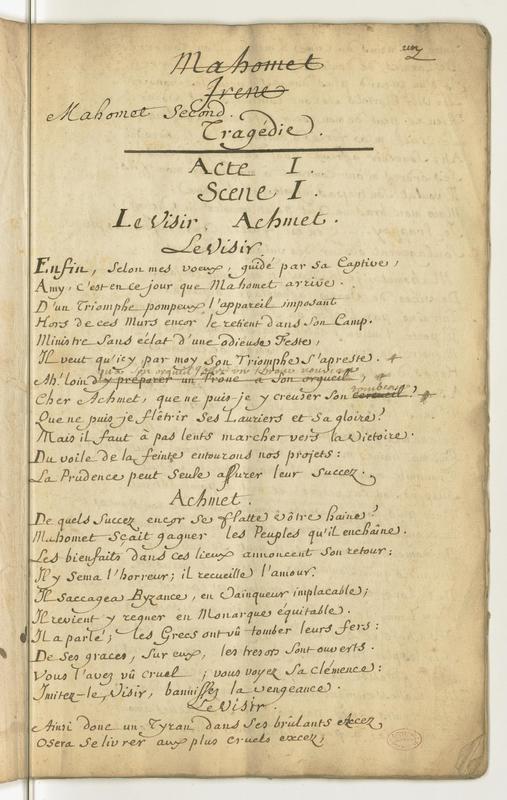 Mahomet
Irene
Mahomet Second.
Tragédie.
Acte I.
Scene I.
Le Visir, Achmet.
Le Visir
Enfin, selon mes voeux, guidé par sa Captive,
Amy, c'est en ce jour que Mahomet arrive.
D'un Triomphe pompeux l'appareil imposant
Hors de ces Murs encor le retient dans son Camp.
Ministre sans éclat d'une odieuse Feste,
Il veut qu'icy, par moy son Triomphe s'apreste.
qu'a son orgueil
Ah! Loin d'y préparer un Trône à son orgueil,
tombeau
Cher Achmet, que ne puis-je y creuser son cercueil!
Que ne puis-je flêtrir ses Lauriers et sa gloire!
Mais il faut à pas lents marcher vers la victoire.
Du voile de la feinte entourons nos projets:
La Prudence peut seule assurer leur succez.
Achmet.
De quels succez encor se flatte vôtre haine?
Mahomet sçait gagner les Peuples qu'il enchaîne.
Les bienfaits dans ces lieux annoncent son retour:
Il y sema l'horreur; il recueille l'amour.
Il saccagea Byzance, en Vainqueur implacable;
Il revient y regner en Monarque équitable.
Il a parlé; les Grecs ont vû tomber leurs fers:
De ses graces, sur eux, les tresors sont ouverts.
Vous l'avez vû cruel; vous voyez sa clémence:
Imitez-le, Visir, bannissez la vengeance.
Le Visir.
Ainsi donc un Tyran dans ses brûlants
Osera se livrer aux plus cruels excez,